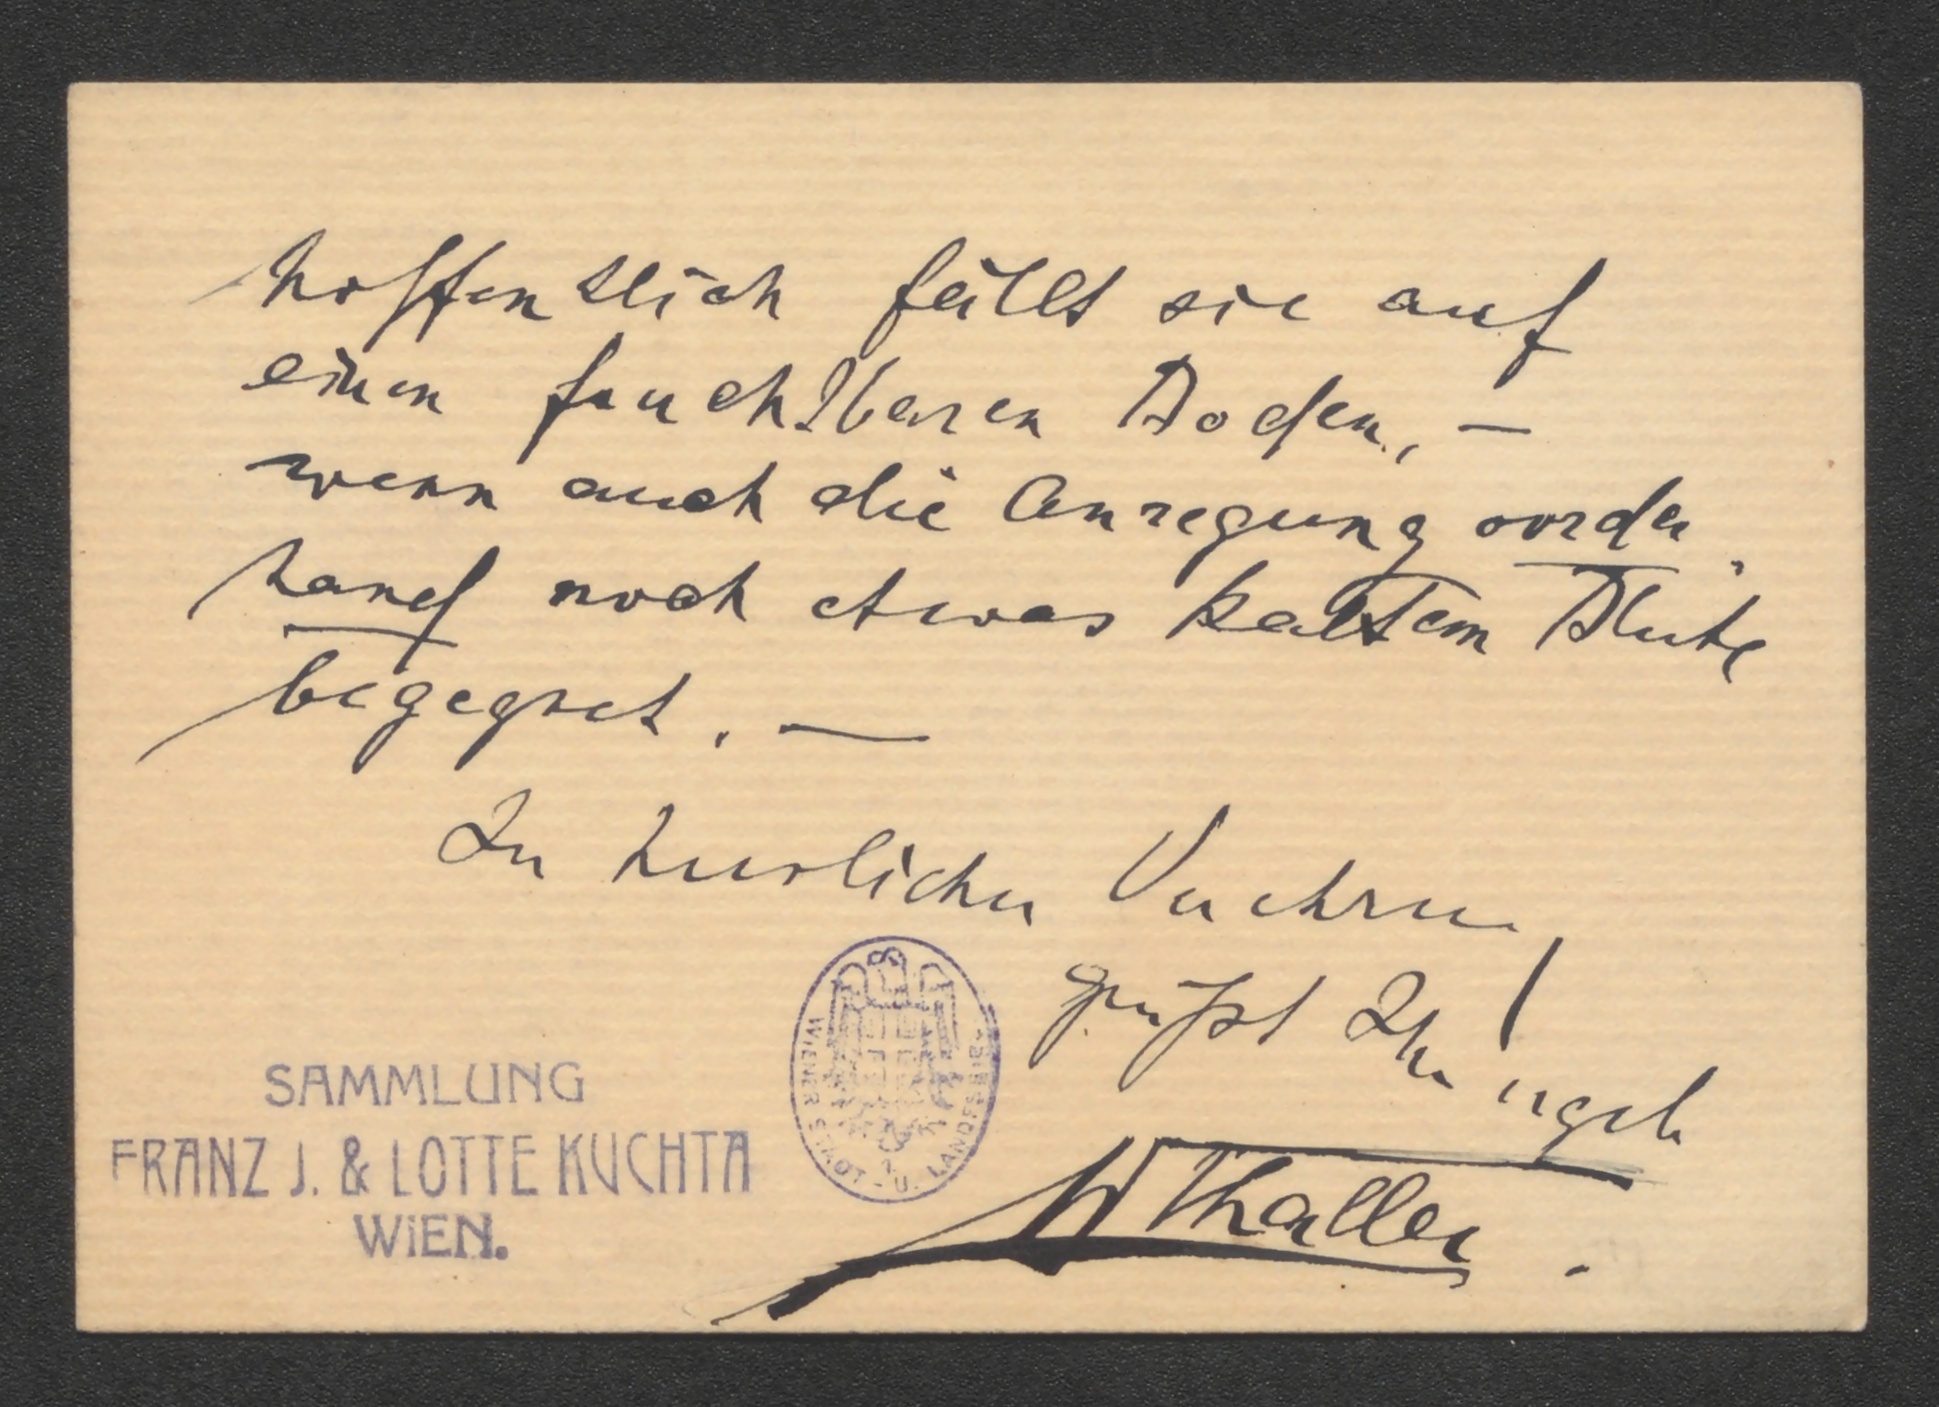 hoffentlich fällt sie auf
einen fruchtbaren Boden, —
wenn auch die Anregung vorder-
hand noch etwas kaltem Blute
begegnet. —
In herzlicher Verehrung
grüßt Ihr
WThaller.
SAMMLUNG
FRANZ J. & LOTTE KUCHTA
WIEN.
WIENER STADT- U. LANDESBIBL.